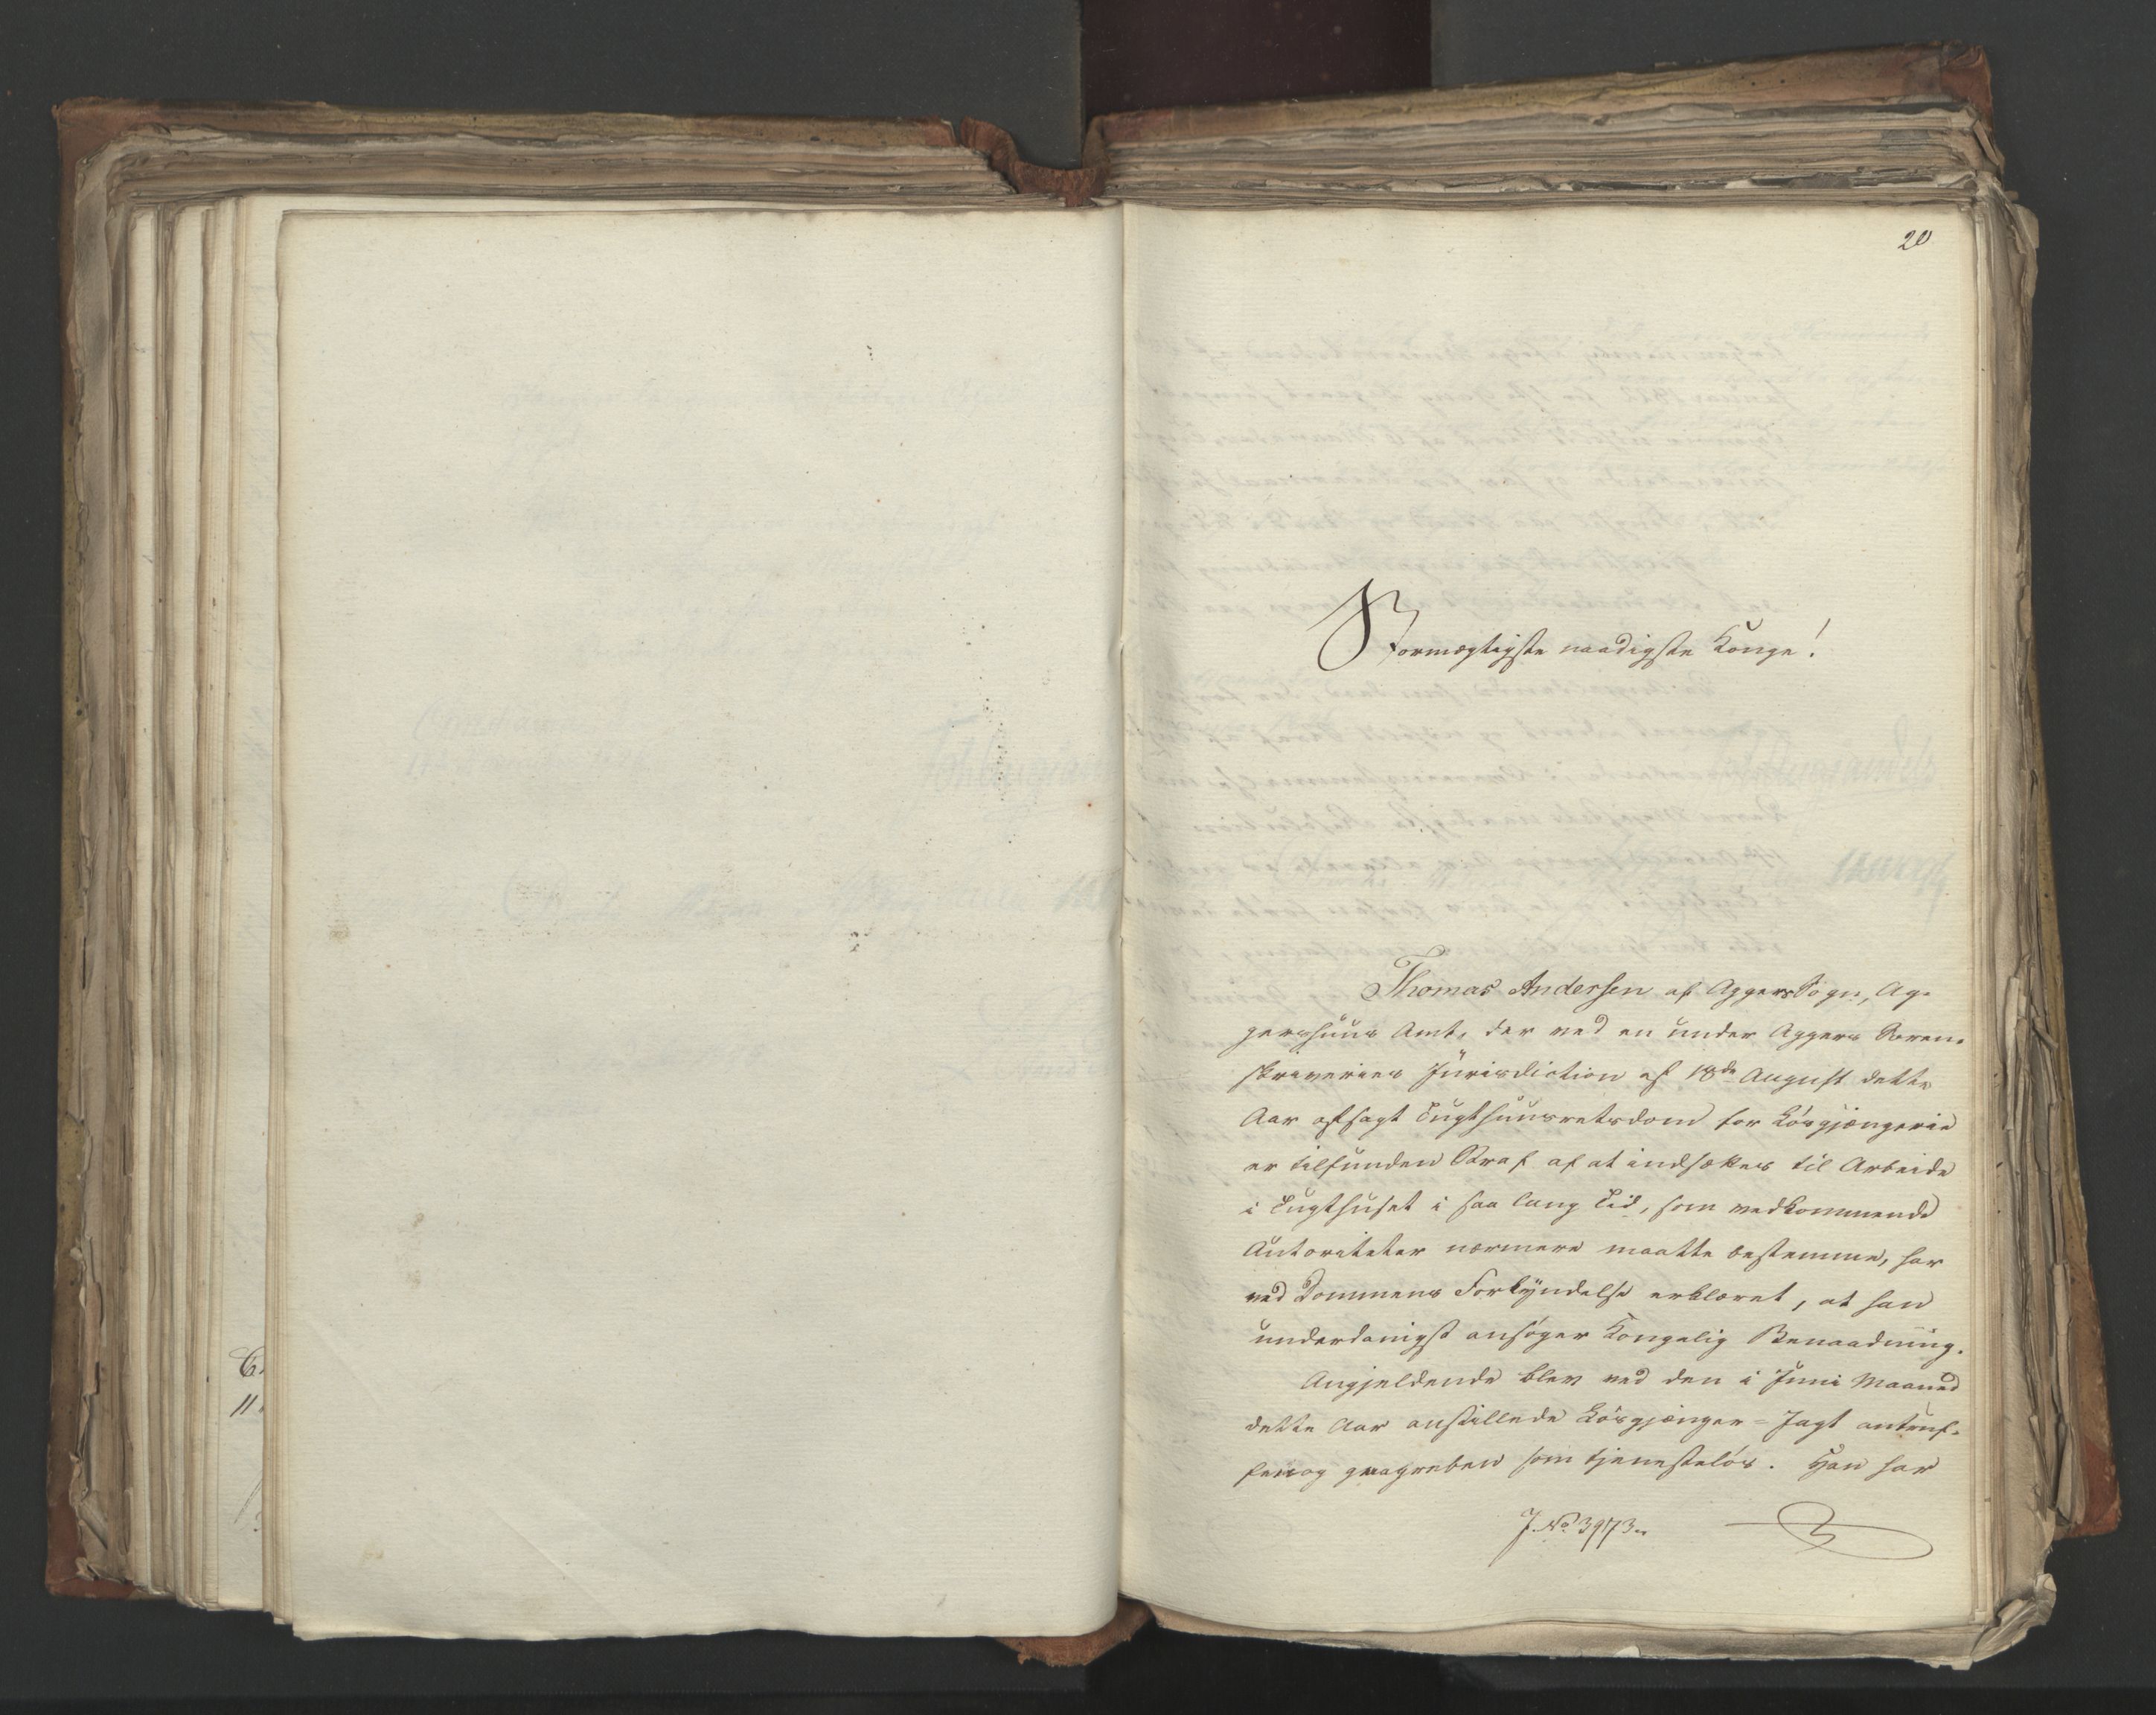 20
Stormægtigste naadigste Konge!
Thomas Andersen af Aggers Sogn, Ag-
gershuus Amt, der ved en under Aggers Soren-
skriveries Jurisdiction af 18de August dette
Aar afsagt Tugthuusretsdom for Løsgjængerie
er tilfunden Straf af at indsættes til Arbeide
i Tugthuset i saa lang Tid, som vedkommende
Autoriteter nærmere maatte bestemme, har
ved Dommens Forkyndelse erklæret, at han
underdanigst ansøger Kongelig Benaadning.
Angjeldende blev ved den i Juni Maaned
dette Aar anstillede Løsgjænger=Jagt antruf-
fen og paagreben som tjenesteløs. Han har
J. No 3973.
Ch
11